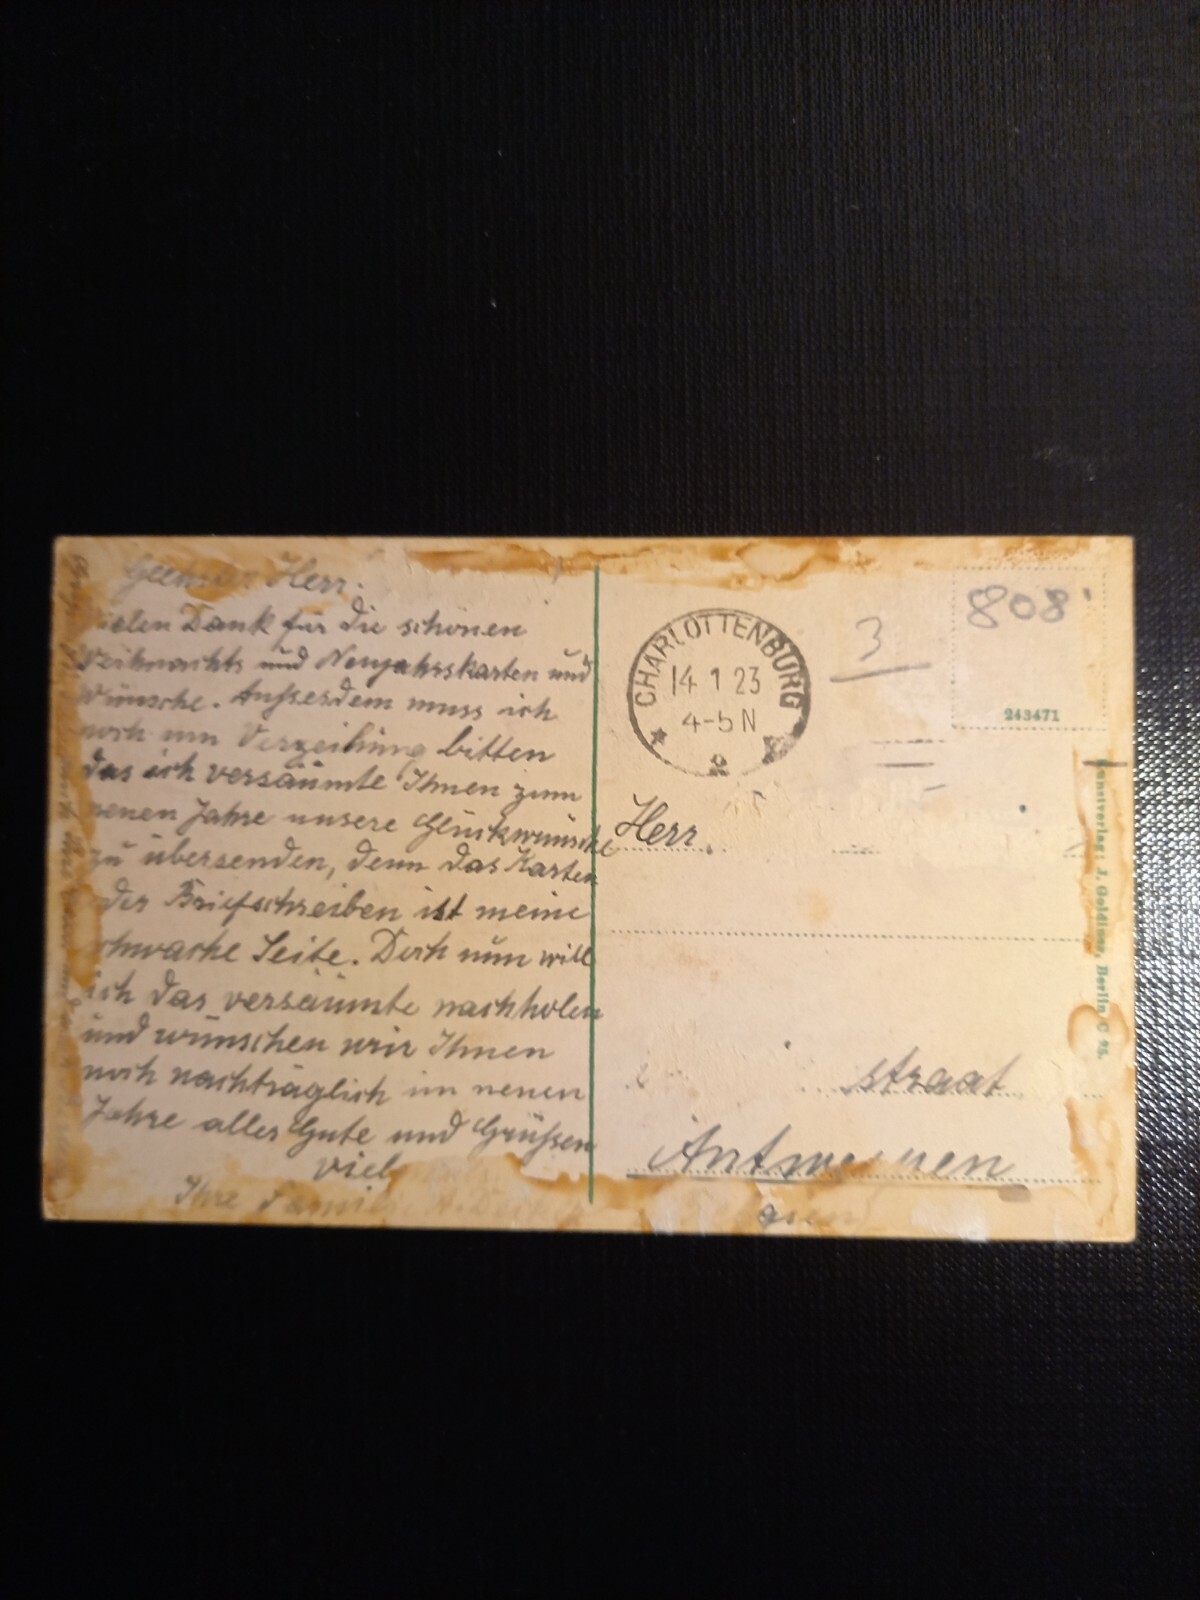 Geehrter Herr.
Vielen Dank für die schönen
Weihnachts und Neujahrskarten und
Wünsche. Ausserdem muss ich
noch um Verzeihung bitten
das ich versäumte Ihnen zum
neuen Jahre unsere Glückwünsche
zu übersenden, denn das Karten
oder Briefschreiben ist meine
schwache Seite. Doch nun will
ich das versäumte nachholen
und wünschen wir Ihnen
noch nachträglich im neuen
Jahre alles Gute und Grüssen
viel
Ihre Familie
CHARLOTTENBURG
14 1 23
4-5 N
* 2
3
808
243471
Herr.
straat
Antwerpen
Kunstverlag: J. Goldiner, Berlin C 25.